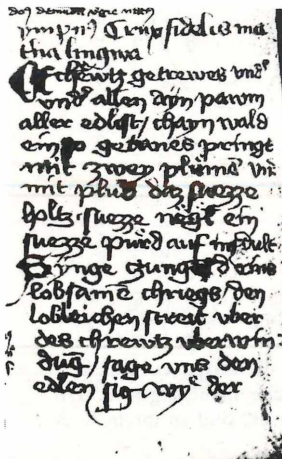 ympnus Crux fidelis ma
thia lingwa
Chrewtz getrewes vnd
vnd allen ayn pawm
aller edlist / chayn wald
ein getanes pringt
mit zwey plüme vn
mit plud daz suezze
holtz suezze negl ein
suezze pürd auf
Synge czung
lobsame chriegs / den
lobleichen streit vber
des chrewtz vberwin
dug / sage vns den
edlen sig wy der